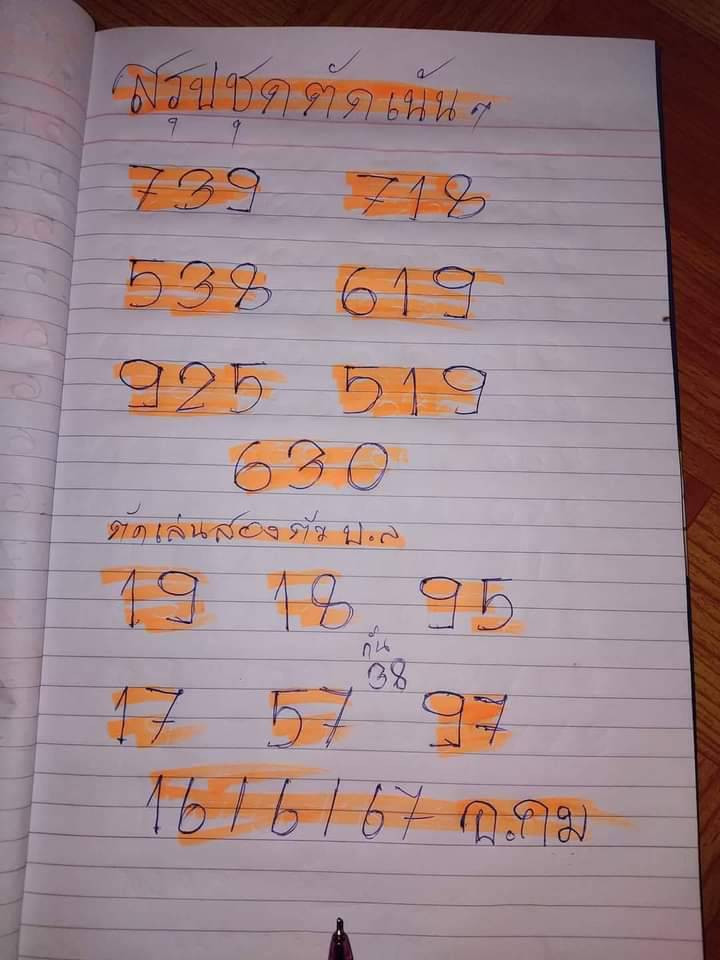 สรุปชุดตัดเน้นๆ
739 718
538 619
925 519
630
ตัดเล่นสองตัว บ.ล
19 18 95
กัน
38
17 57 97
16/6/67 อ.คม